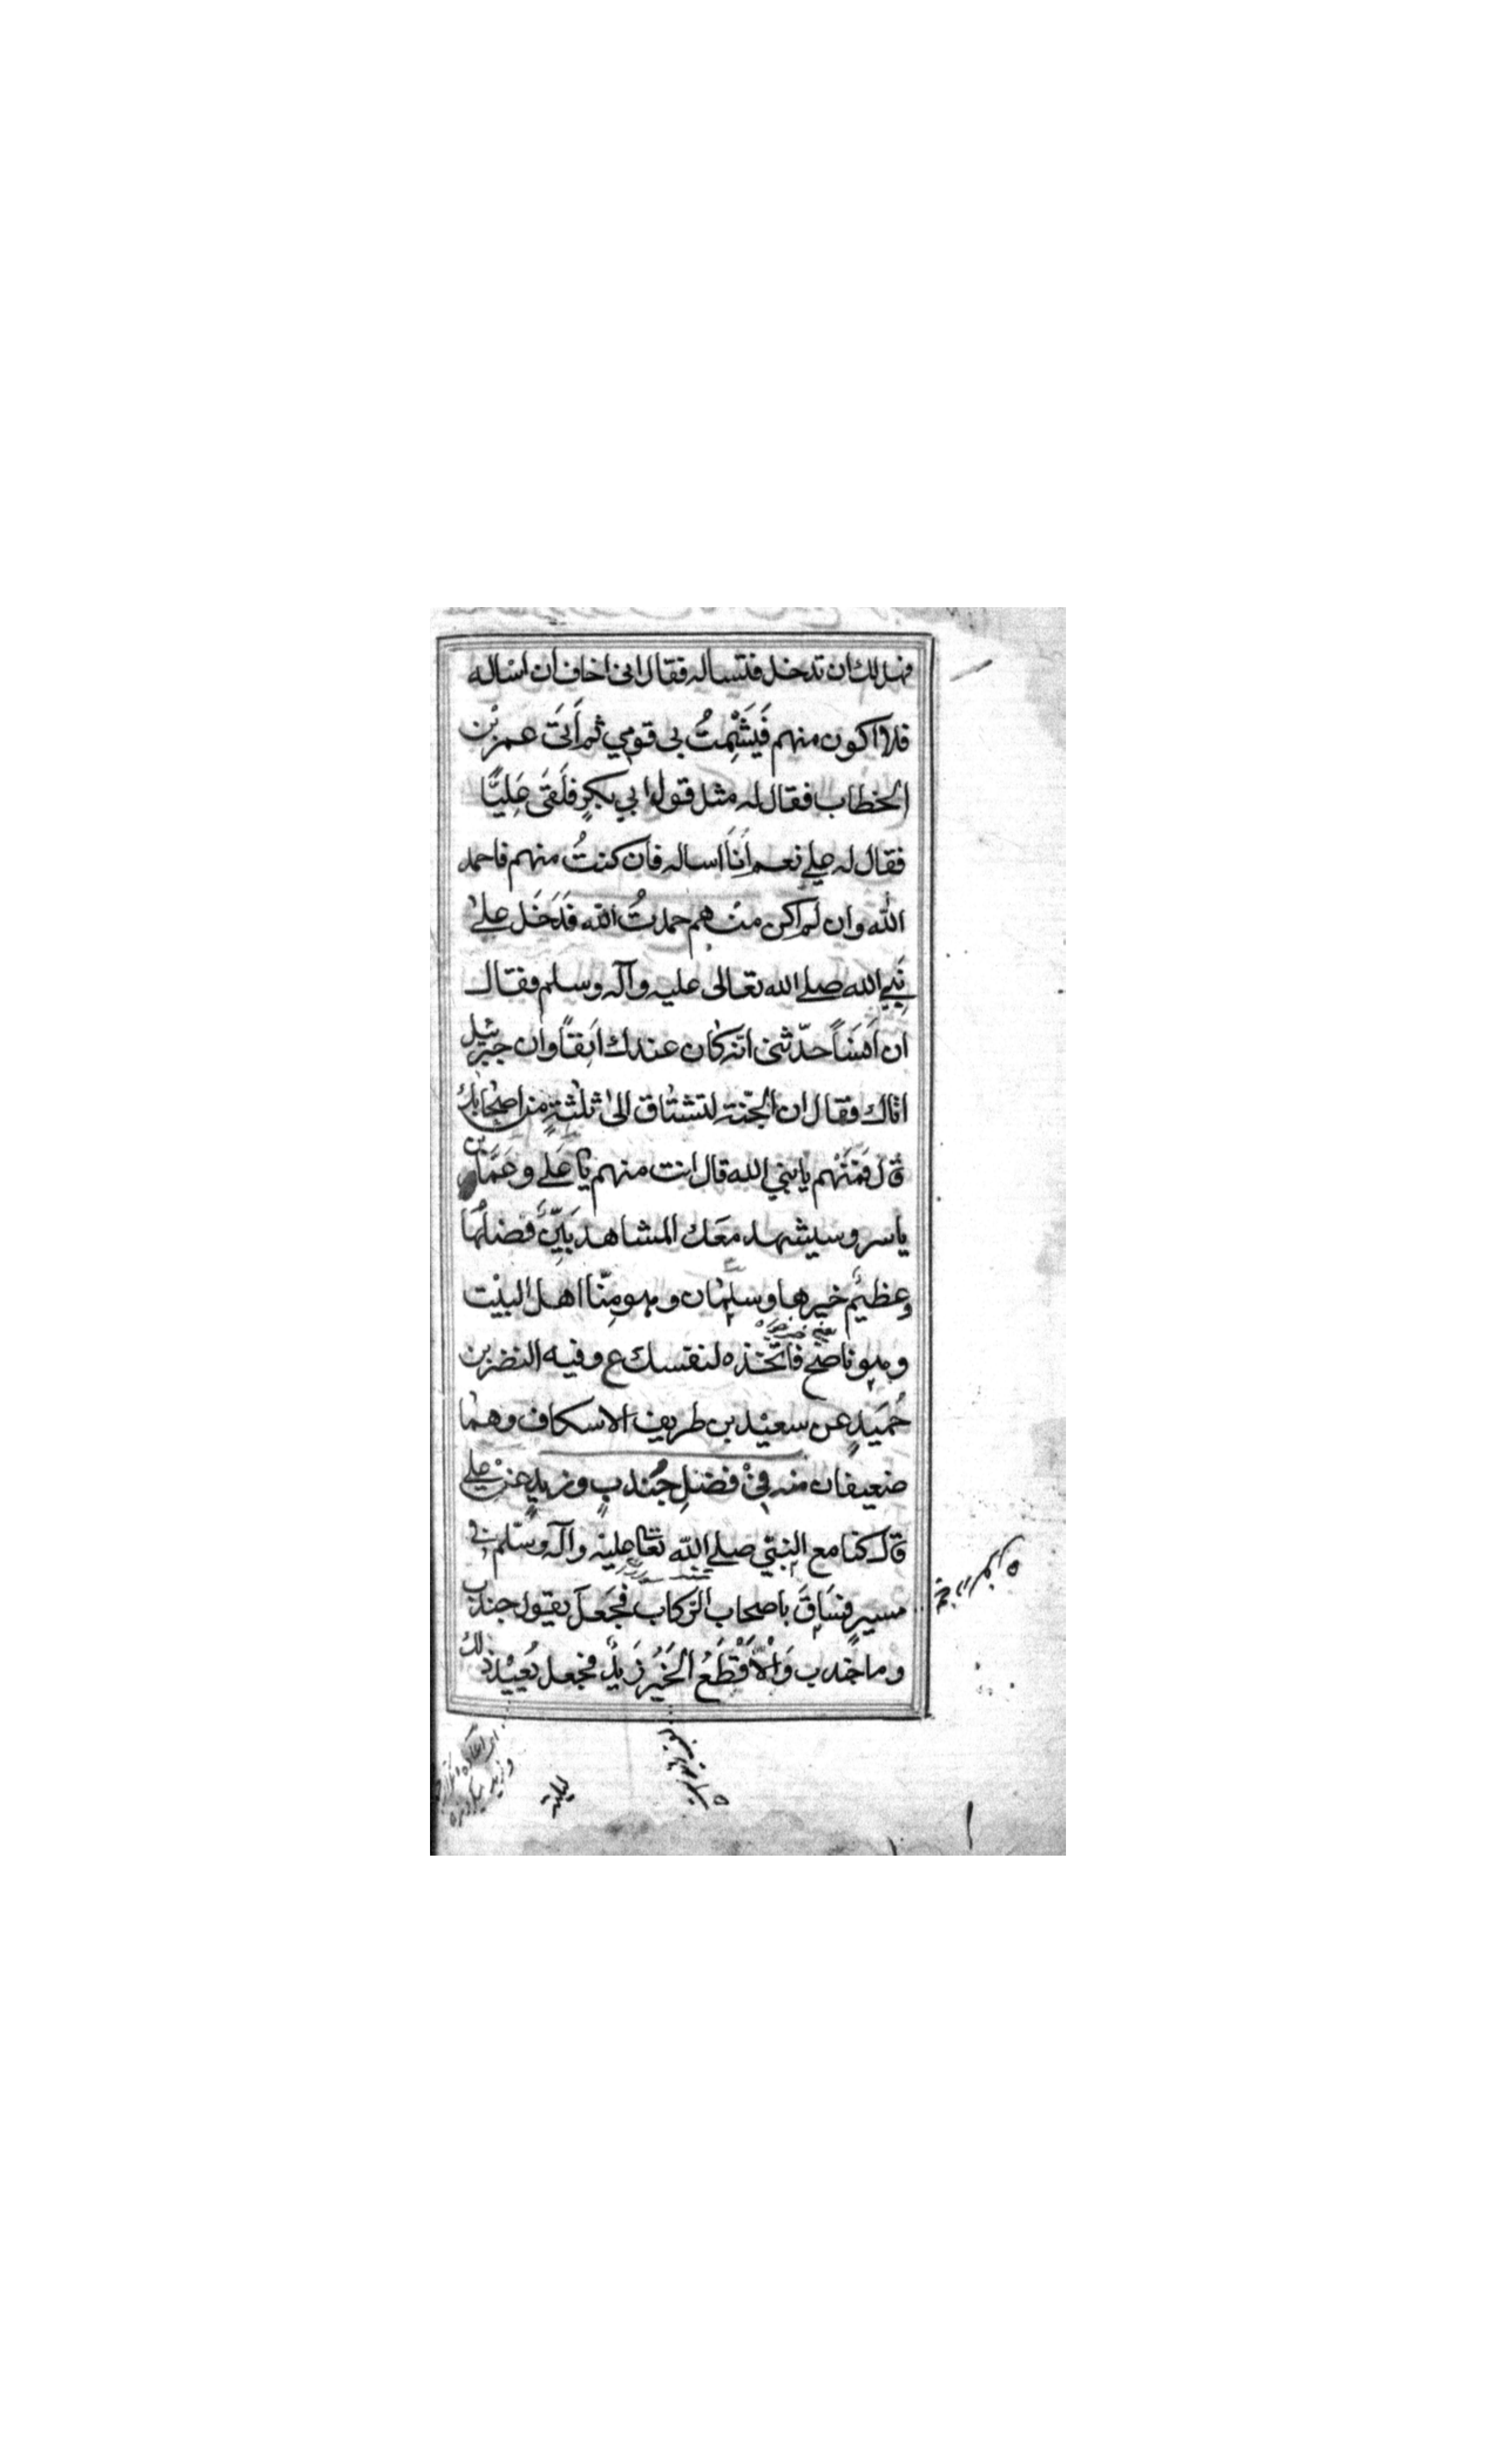 فهل لك ان تدخل فتساله فقال انى اخاف ان اساله
فلا اكون منهم فَيَشْمِتُ بى قومي ثم أَتَى عمر بْن
الخطاب فقال له مثل قول ابي بكرٍ فلَقَى عَلِيًّا
فقال له علي نعم أَنَا اساله فان كنتُ منهم فاحمد
الله وان لم اكن منهم حمدتُ الله فَدَخَل على
نَبِي الله صلى الله تعالى عليه وآله وسلم فقال
ان اَنَسًا حدّثنى انّه كان عندك اَنِفًا وان جبرئيل
اتاك فقال ان الجّنة لتشتاق الى ثلثةٍ من اصحابك
قال فَمَنْهم يا نبي الله قال انت منهم يا عَلي وعَمَّار بن
ياسر وسيشهد معَك المشاهد بَيِّنٌ فضلُهَا
وعظيمٌ خيرها وسلمان وهو مِنّا اهل البيْت
وهو ناصح فاتّخذه لنفسك ع وفيه النضر بن
حُمَيدٍ عن سعيْد بن طريف الاسكاف وهما
ضعيفان منه فِيْ فضلِ جُندبٍ وزيدٍ عنْ علي
قال كنا مع النبّي صلى الله تعا عليْه وآله وسّلم فى
مسيرٍ فسَاقَ باصحاب الرّكاب فجَعَلَ يقول جندب
وما جندب وَالْاَقْطَعُ الخَيُر زَيدٌ فجعل يُعيْد ذلك